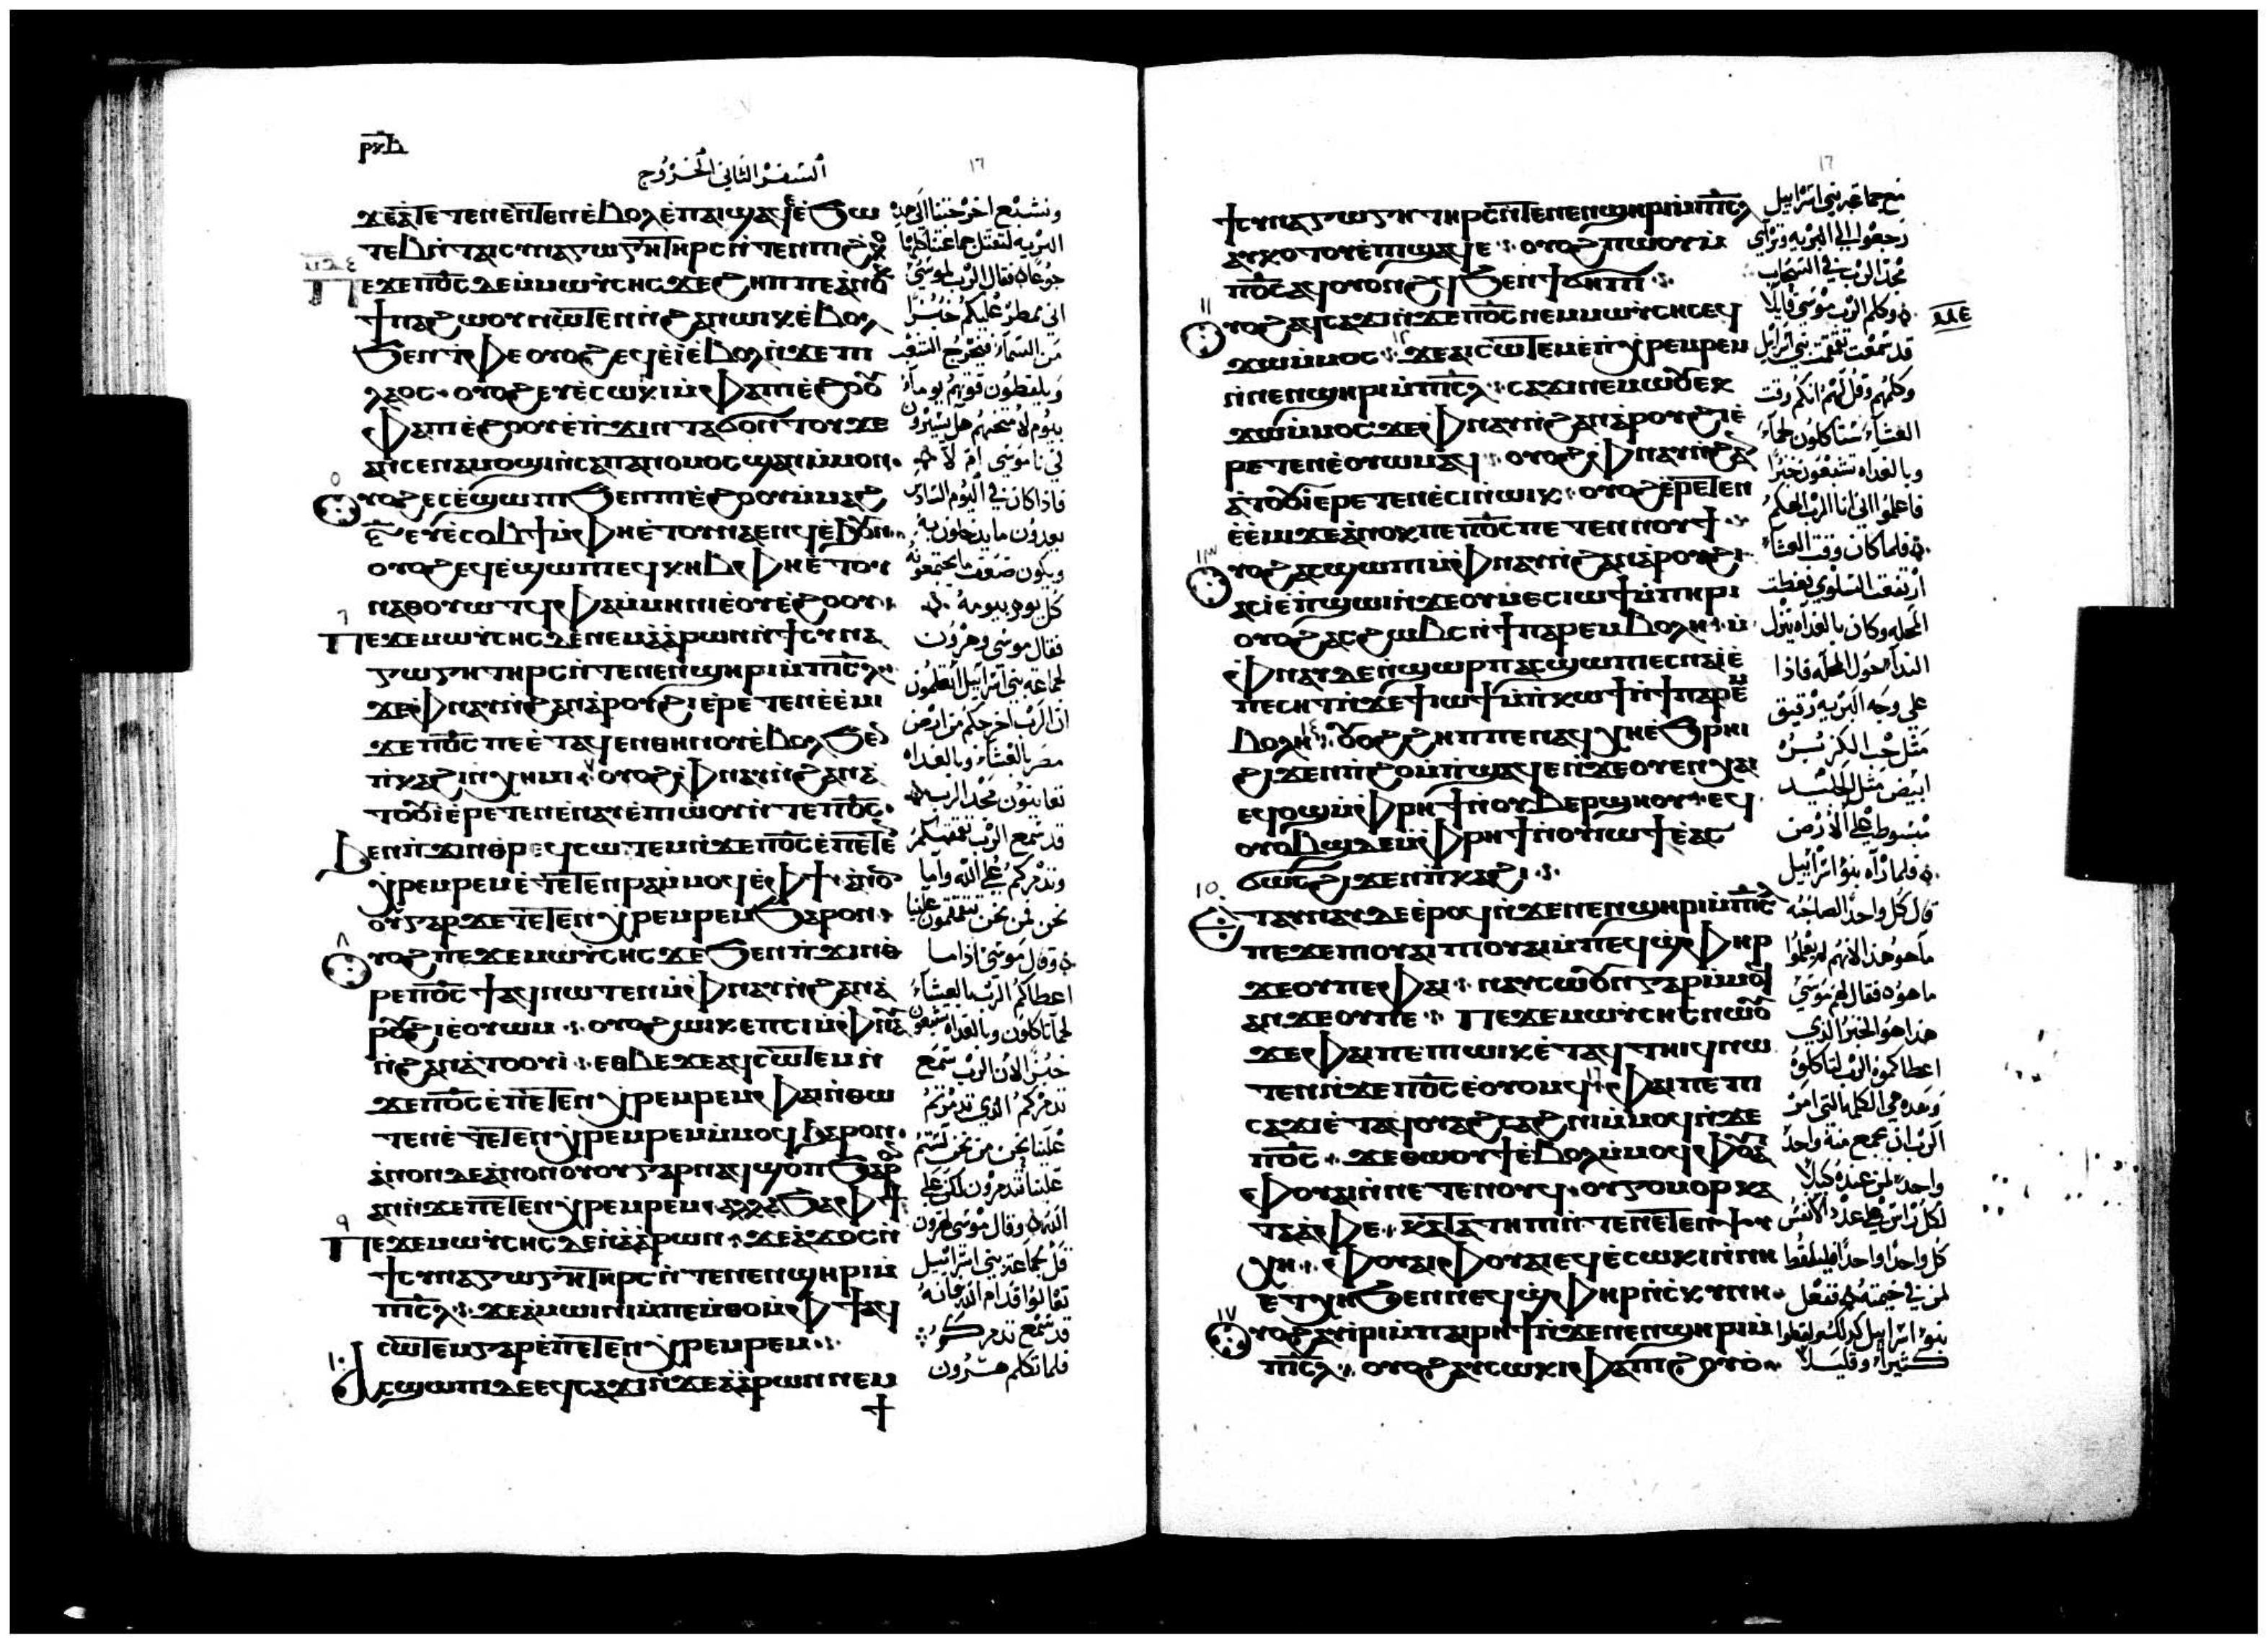 السفر الثاني الخروج
١٦
ϫⲉⲁⲧⲉⲧⲉⲛⲉⲛⲧⲉⲛⲉⲃⲟⲗⲉⲡⲁⲓϣⲁϥⲉⲉϧⲱ
ⲧⲉⲃⲛ̀ⲧⲁⲓⲥⲩⲛⲁⲅⲱⲅⲏⲧⲏⲣⲥϧⲉⲛⲡⲓϩⲕⲟ
ⲡⲉϫⲉⲡⲟ̅ⲥ̅ⲇⲉⲙ̀ⲙⲱⲩⲥⲏⲥϫⲉϩⲏⲡⲡⲉⲁⲛⲟⲕ
ϯⲛⲁϩⲱⲟⲩⲛⲱⲧⲉⲛⲛ̀ϩⲁⲛⲱⲓⲕⲉ̀ⲃⲟⲗ
ϧⲉⲛⲧ̀ⲫⲉⲟⲩⲟϩⲉϥⲉ̀ⲓⲉ̀ⲃⲟⲗⲛ̀ϫⲉⲡⲓ
ⲗⲁⲟⲥ· ⲟⲩⲟϩⲉⲩⲉ̀ⲥⲱⲕⲓⲙ̀ⲫⲁⲡⲓⲉ̀ϩⲟⲟⲩ
ⲫⲁⲡⲓⲉ̀ϩⲟⲟⲩⲉ̀ⲡ̀ϫⲓⲛⲧⲁϭⲟⲛⲧⲟⲩϫⲉ
ⲁⲛⲥⲉⲛⲁⲙⲟϣⲓⲛ̀ⲥⲁⲡⲁⲛⲟⲙⲟⲥϣⲁⲛⲙ̀ⲙⲟⲛ·
٥ ⲟⲩⲟϩⲉⲥⲉ̀ϣⲱⲡⲓϧⲉⲛⲡⲓⲉ̀ϩⲟⲟⲩⲙ̀ⲙⲁϩ
ⲋ̅ⲉⲩⲉ̀ⲥⲟⲃϯⲙ̀ⲫⲏⲉ̀ⲧⲟⲩⲛⲁⲉⲛϥⲉ̀ϧⲟⲩⲛ·
ⲟⲩⲟϩⲉϥⲉ̀ϣⲱⲡⲓⲉϥⲕⲏⲃⲙ̀ⲫⲏⲉ̀ⲧⲟⲩ
ⲛⲁⲑⲟⲩⲱⲧϥⲙ̀ⲫⲁⲙ̀ⲙⲏⲛⲓⲉ̀ⲟⲩⲉ̀ϩⲟⲟⲩ·
٦ ⲡⲉϫⲉⲙⲱⲩⲥⲏⲥⲇⲉⲛⲉⲙⲁ̀ⲁ̀ⲣⲱⲛⲛ̀ϯⲥⲩⲛⲁ
ⲅⲱⲅⲏⲧⲏⲣⲥⲛ̀ⲧⲉⲛⲉⲛϣⲏⲣⲓⲙ̀ⲡⲓⲥ̅ⲗ̅·
ϫⲉⲙ̀ⲫⲛⲁⲩⲛ̀ϩⲁⲛⲁ̀ⲣⲟⲩϩⲓⲉ̀ⲣⲉⲧⲉⲛⲉ̀ⲉ̀ⲙⲓ
ϫⲉⲡⲟ̅ⲥ̅ⲡⲉⲉ̀ⲧⲁϥⲉⲛⲑⲏⲛⲟⲩⲉ̀ⲃⲟⲗϧⲉⲛ
ⲡ̀ⲕⲁϩⲓⲛ̀ⲭⲏⲙⲓ· ٧ ⲟⲩⲟϩⲙ̀ⲫⲛⲁⲩⲛ̀ϩⲁⲛⲁ̀
ⲧⲟⲟⲩⲓ̀ⲉ̀ⲣⲉⲧⲉⲛⲉ̀ⲛⲁⲩⲉ̀ⲡ̀ⲱⲟⲩⲛ̀ⲧⲉⲡⲟ̅ⲥ̅·
ϧⲉⲛⲡ̀ϫⲓⲛⲑⲣⲉϥⲥⲱⲧⲉⲙⲛ̀ϫⲉⲡⲟ̅ⲥ̅ⲉ̀ⲡⲉⲧⲉⲛ
ⲭ̀ⲣⲉⲙⲣⲉⲙⲉ̀ⲧⲉⲧⲉⲛⲣⲁⲙ̀ⲙⲟϥⲉ̀ⲫϯ· ⲁ̀ⲛⲟⲛ
ⲟⲩⲅⲁⲣϫⲉⲧⲉⲧⲉⲛⲭ̀ⲣⲉⲙⲣⲉⲙϧⲁⲣⲟⲛ·
٨ ⲟⲩⲟϩⲡⲉϫⲉⲙⲱⲩⲥⲏⲥϫⲉϧⲉⲛⲡ̀ϫⲓⲛⲑ
ⲣⲉⲡⲟ̅ⲥ̅ϯⲁϥⲛⲱⲧⲉⲛⲙ̀ⲫⲛⲁⲩⲛ̀ϩⲁⲛⲁ̀
ⲣⲟⲩϩⲓⲉ̀ⲟⲩⲱⲙ· ⲟⲩⲟϩⲱⲓⲕⲉⲡⲥⲓⲙ̀ⲫⲛⲁⲩ
ⲛ̀ϩⲁⲛⲁ̀ⲧⲟⲟⲩⲓ̀· ⲉⲑⲃⲉϫⲉⲁϥⲥⲱⲧⲉⲙⲛ̀
ϫⲉⲡⲟ̅ⲥ̅ⲉ̀ⲡⲉⲧⲉⲛⲭ̀ⲣⲉⲙⲣⲉⲙⲫⲁⲓⲛ̀ⲑⲱ
ⲧⲉⲛⲉ̀ⲧⲉⲧⲉⲛⲭ̀ⲣⲉⲙⲣⲉⲙⲙ̀ⲙⲟϥϧⲁⲣⲟⲛ·
ⲁ̀ⲛⲟⲛⲇⲉⲁ̀ⲛⲟⲛⲟⲩⲟⲩⲅⲁⲣⲛⲁϥⲭⲟⲡϧⲁⲣⲟⲛ
ⲁⲛⲛ̀ϫⲉⲡⲉⲧⲉⲛⲭ̀ⲣⲉⲙⲣⲉⲙ· ⲁⲗⲗⲁϧⲁⲫϯ·
٩ ⲡⲉϫⲉⲙⲱⲩⲥⲏⲥⲇⲉⲛ̀ⲁ̀ⲁ̀ⲣⲱⲛ· ϫⲉⲁ̀ϫⲟⲥⲛ̀
ϯⲥⲩⲛⲁⲅⲱⲅⲏⲧⲏⲣⲥⲛ̀ⲧⲉⲛⲉⲛϣⲏⲣⲓⲙ̀
ⲡⲓⲥ̅ⲗ̅· ϫⲉⲁ̀ⲙⲱⲓⲛⲓⲙ̀ⲡⲉⲙ̀ⲑⲟⲙ̀ⲫϯⲁϥ
ⲥⲱⲧⲉⲙⲅⲁⲣⲉ̀ⲡⲉⲧⲉⲛⲭ̀ⲣⲉⲙⲣⲉⲙ·
١٠ ⲁⲥϣⲱⲡⲓⲇⲉⲉϥⲥⲁϫⲓⲛ̀ϫⲉⲁ̀ⲁ̀ⲣⲱⲛⲛⲉⲙ
ϯ
ونشبع اخرجتنا الى هذه
البريه لتقتل جماعتنا كلها
جوعا فقال الرب لموسى
اني ممطر عليكم خبزا
من السماء فيخرج الشعب
ويلقطون قوتهم يوما
بيوم لامتحنهم هل يسيرون
في ناموسي ام لا
فاذا كان في اليوم السادس
يعدون ما يدخلون به
ويكون ضعف ما يجمعونه
كل يوم بيومه
فقال موسى وهرون
لجماعة بني اسرائيل تعلمون
ان الرب اخرجكم من ارض
مصر بالعشاء وبالغداه
تعاينون مجد الرب
قد سمع الرب تقمقمكم
وتذمركم على الله واما
نحن فمن نحن تتقمقمون علينا
وقال موسى اذا ما
اعطاكم الرب بالعشاء
لحما تاكلون وبالغداه تشبعون
خبزا لان الرب سمع
تذمركم الذي تذمرتم
علينا نحن من نحن لستم
علينا تتذمرون لكن على
الله وقال موسى لهرون
قل لجماعة بني اسرائيل
تعالوا قدام الله فانه
قد سمع تذمركم
فلما تكلم هرون
١٦
ϯⲥⲩⲛⲁⲅⲱⲅⲏⲧⲏⲣⲥⲛ̀ⲧⲉⲛⲉⲛϣⲏⲣⲓⲙ̀ⲡⲓⲥ̅ⲗ̅
ⲁⲩⲕⲟⲧⲟⲩⲉ̀ⲡ̀ϣⲁϥⲉ· ⲟⲩⲟϩⲡ̀ⲱⲟⲩⲙ̀
ⲡⲟ̅ⲥ̅ⲁϥⲟⲩⲟⲛϩϥϧⲉⲛϯϭⲏⲡⲓ·
١١ ⲟⲩⲟϩⲁϥⲥⲁϫⲓⲛ̀ϫⲉⲡⲟ̅ⲥ̅ⲛⲉⲙⲙⲱⲩⲥⲏⲥⲉϥ
ϫⲱⲙ̀ⲙⲟⲥ· ١٢ ϫⲉⲁⲓⲥⲱⲧⲉⲙⲉ̀ⲡ̀ⲭ̀ⲣⲉⲙⲣⲉⲙ
ⲛ̀ⲛⲉⲛϣⲏⲣⲓⲙ̀ⲡⲓⲥ̅ⲗ̅· ⲥⲁϫⲓⲛⲉⲙⲱⲟⲩⲉⲕ
ϫⲱⲙ̀ⲙⲟⲥ· ϫⲉⲙ̀ⲫⲛⲁⲩⲛ̀ϩⲁⲛⲁ̀ⲣⲟⲩϩⲓⲉ̀
ⲣⲉⲧⲉⲛⲉ̀ⲟⲩⲱⲙⲁϥ· ⲟⲩⲟϩⲙ̀ⲫⲛⲁⲩⲛ̀ϩⲁⲛ
ⲁ̀ⲧⲟⲟⲩⲓ̀ⲉ̀ⲣⲉⲧⲉⲛⲉ̀ⲥⲓⲛ̀ⲱⲓⲕ· ⲟⲩⲟϩⲉ̀ⲣⲉⲧⲉⲛ
ⲉ̀ⲉ̀ⲙⲓϫⲉⲁ̀ⲛⲟⲕⲡⲉⲡⲟ̅ⲥ̅ⲡⲉⲧⲉⲛⲛⲟⲩϯ·
١٣ ⲟⲩⲟϩⲁⲥϣⲱⲡⲓⲙ̀ⲫⲛⲁⲩⲛ̀ϩⲁⲛⲁ̀ⲣⲟⲩϩⲓ·
ⲁⲥⲓ̀ⲉ̀ⲡ̀ϣⲱⲓⲛ̀ϫⲉⲟⲩⲙⲉⲥⲓⲱϯⲙ̀ⲡⲏⲣⲓ
ⲟⲩⲟϩⲁⲥϩⲱⲃⲥⲛ̀ϯⲡⲁⲣⲉⲙⲃⲟⲗⲏ· ⲙ̀
ⲫⲛⲁⲩⲇⲉⲛ̀ϣⲱⲣⲡⲁⲥϣⲱⲡⲓⲉⲥⲛⲁⲓ̀ⲉ̀
ⲡⲉⲥⲏⲧⲛ̀ϫⲉϯⲓⲱϯⲙ̀ⲡ̀ⲕⲱϯⲛ̀ϯⲡⲁⲣⲉⲙ
ⲃⲟⲗⲏ· ١٤ ⲟⲩⲟϩϩⲏⲡⲡⲉⲛⲁϥⲭⲏⲉ̀ϩⲣⲏⲓ
ϩⲓϫⲉⲛⲡ̀ϩⲟⲙ̀ⲡ̀ϣⲁϥⲉⲛ̀ϫⲉⲟⲩⲉⲛⲭⲁⲓ
ⲉϥϣⲟⲙⲙ̀ⲫⲣⲏϯⲛ̀ⲟⲩⲃⲉⲣϣⲏⲟⲩ· ⲉϥ
ⲟⲩⲟⲃϣⲇⲉⲙ̀ⲫⲣⲏϯⲛ̀ⲟⲩⲓⲱϯⲉ̀ⲁϥ
ϭⲱⲥϩⲓϫⲉⲛⲡⲓⲕⲁϩⲓ·
١٥ ⲉ̀ⲧⲁⲩⲛⲁⲩⲇⲉⲉ̀ⲣⲟϥⲛ̀ϫⲉⲛⲉⲛϣⲏⲣⲓⲙ̀ⲡⲓⲥ̅ⲗ̅
ⲡⲉϫⲉⲡⲓⲟⲩⲁⲓⲡⲓⲟⲩⲁⲓⲙ̀ⲡⲉϥϣ̀ⲫⲏⲣ
ϫⲉⲟⲩⲡⲉⲫⲁⲓ· ⲛⲁⲩⲥⲱⲟⲩⲛⲅⲁⲣⲙ̀ⲙⲟϥ
ⲁⲛϫⲉⲟⲩⲡⲉ· ⲡⲉϫⲉⲙⲱⲩⲥⲏⲥⲛⲱⲟⲩ
ϫⲉⲫⲁⲓⲡⲉⲡⲓⲱⲓⲕⲉ̀ⲧⲁϥⲧⲏⲓϥⲛⲱ
ⲧⲉⲛⲛ̀ϫⲉⲡⲟ̅ⲥ̅ⲉ̀ⲟⲩⲟⲙϥ· ١٦ ⲫⲁⲓⲡⲉⲡⲓ
ⲥⲁϫⲓⲉ̀ⲧⲁϥⲟⲩⲁϩⲥⲁϩⲛⲓⲙ̀ⲙⲟϥⲛ̀ϫⲉ
ⲡⲟ̅ⲥ̅· ϫⲉⲑⲱⲟⲩϯⲉ̀ⲃⲟⲗⲙ̀ⲙⲟϥⲫⲟⲩⲁⲓ
ⲫⲟⲩⲁⲓⲛ̀ⲛⲉⲧⲉⲛⲟⲩϥ· ⲟⲩⲅⲟⲙⲟⲣⲕⲁ
ⲧⲁⲁ̀ⲫⲉ· ⲕⲁⲧⲁⲧⲏⲡⲓⲛ̀ⲧⲉⲛⲉⲧⲉⲛⲯⲩ
ⲭⲏ· ⲫⲟⲩⲁⲓⲫⲟⲩⲁⲓⲉϥⲉ̀ⲥⲱⲕⲓⲛ̀ⲛⲏ
ⲉⲧⲭⲏϧⲉⲛⲛⲉϥϣ̀ⲫⲏⲣⲛ̀ⲥⲕⲩⲛⲏ·
١٧ ⲟⲩⲟϩⲁⲩⲓ̀ⲣⲓⲙ̀ⲡⲁⲓⲣⲏϯⲛ̀ϫⲉⲛⲉⲛϣⲏⲣⲓⲙ̀
ⲡⲓⲥ̅ⲗ̅· ⲟⲩⲟϩⲁⲩⲥⲱⲕⲓⲫⲁⲡⲓϩⲟⲩⲟ̀·
مع جماعة بني اسرائيل
رجعوا الى البريه وتراى
مجد الرب في السحاب
وكلم الرب موسى قايلا
قد سمعت تقمقم بني اسرائيل
وكلمهم وقل لهم انكم وقت
العشاء ستاكلون لحما
وبالغداه تشبعون خبزا
فاعلموا اني انا الرب الهكم
فلما كان وقت العشاء
ارتفعت السلوى وغطت
المحله وكان بالغداه ينزل
الندا حول المحله فاذا
على وجه البريه رقيق
مثل حب الكزبره
ابيض مثل الجليد
مبسوط على الارض
فلما راه بنو اسرائيل
قال كل واحد لصاحبه
ما هو هذا لانهم لم يعلموا
ما هو فقال لهم موسى
هذا هو الخبز الذي
اعطاكموه الرب لتاكلوه
وهذه هي الكلمه التي امر
الرب ان يجمع منه واحد
واحد لمن عنده كيلا
لكل راس على عدد الانفس
كل واحد واحد فليلقط
لمن في خيمته ففعل
بنو اسرائيل كذلك ولقطوا
كثيرا وقليلا